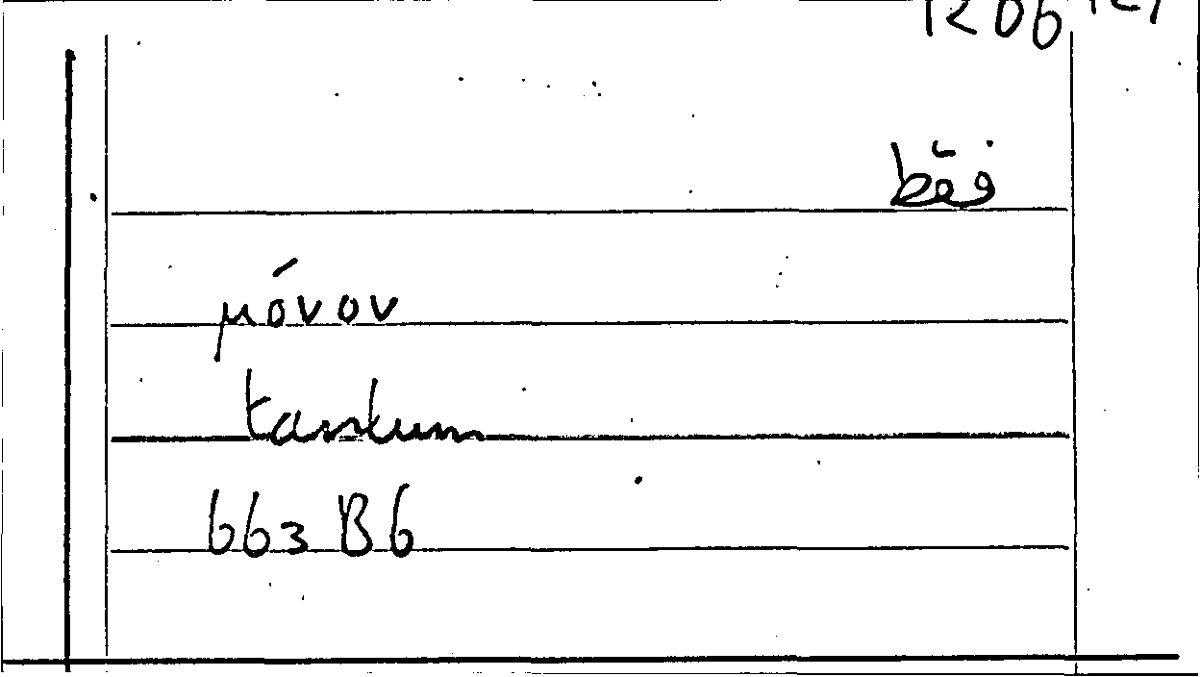 فقط
μόνον
tantum
663 B6